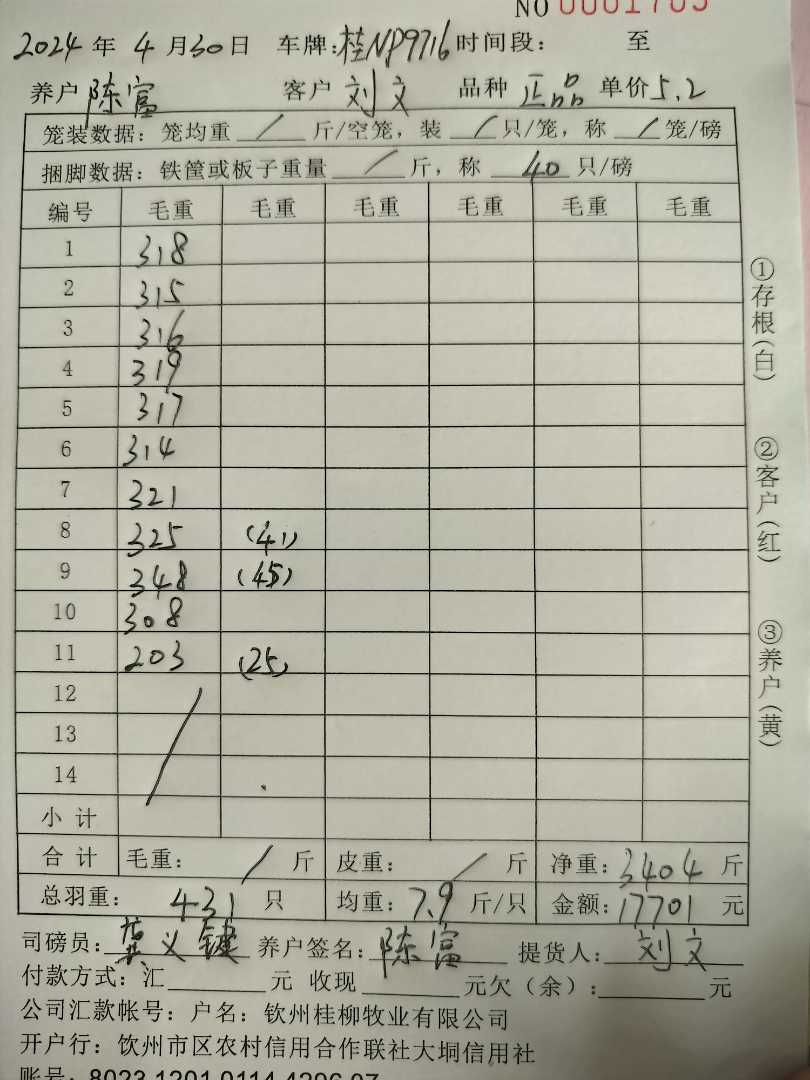 NO 0001705
2024 年 4 月 30 日 车牌: 桂NP9716 时间段: 至
养户 陈富 客户 刘文 品种 正品 单价 5.2
笼装数据: 笼均重 / 斤/空笼, 装 / 只/笼, 称 / 笼/磅
捆脚数据: 铁筐或板子重量 / 斤, 称 40 只/磅
编号 毛重 毛重 毛重 毛重 毛重 毛重
1 318
2 315
3 316
4 319
5 317
6 314
7 321
8 325 (41)
9 348 (45)
10 308
11 203 (25)
12
13
14
小计
合计 毛重: / 斤 皮重: / 斤 净重: 3404 斤
总羽重: 431 只 均重: 7.9 斤/只 金额: 17701 元
司磅员: 莫义键 养户签名: 陈富 提货人: 刘文
付款方式: 汇 元 收现 元欠(余): 元
公司汇款帐号: 户名: 钦州桂柳牧业有限公司
开户行: 钦州市区农村信用合作联社大垌信用社
账号: 8023 1201 0114 4296 07
①存根(白) ②客户(红) ③养户(黄)